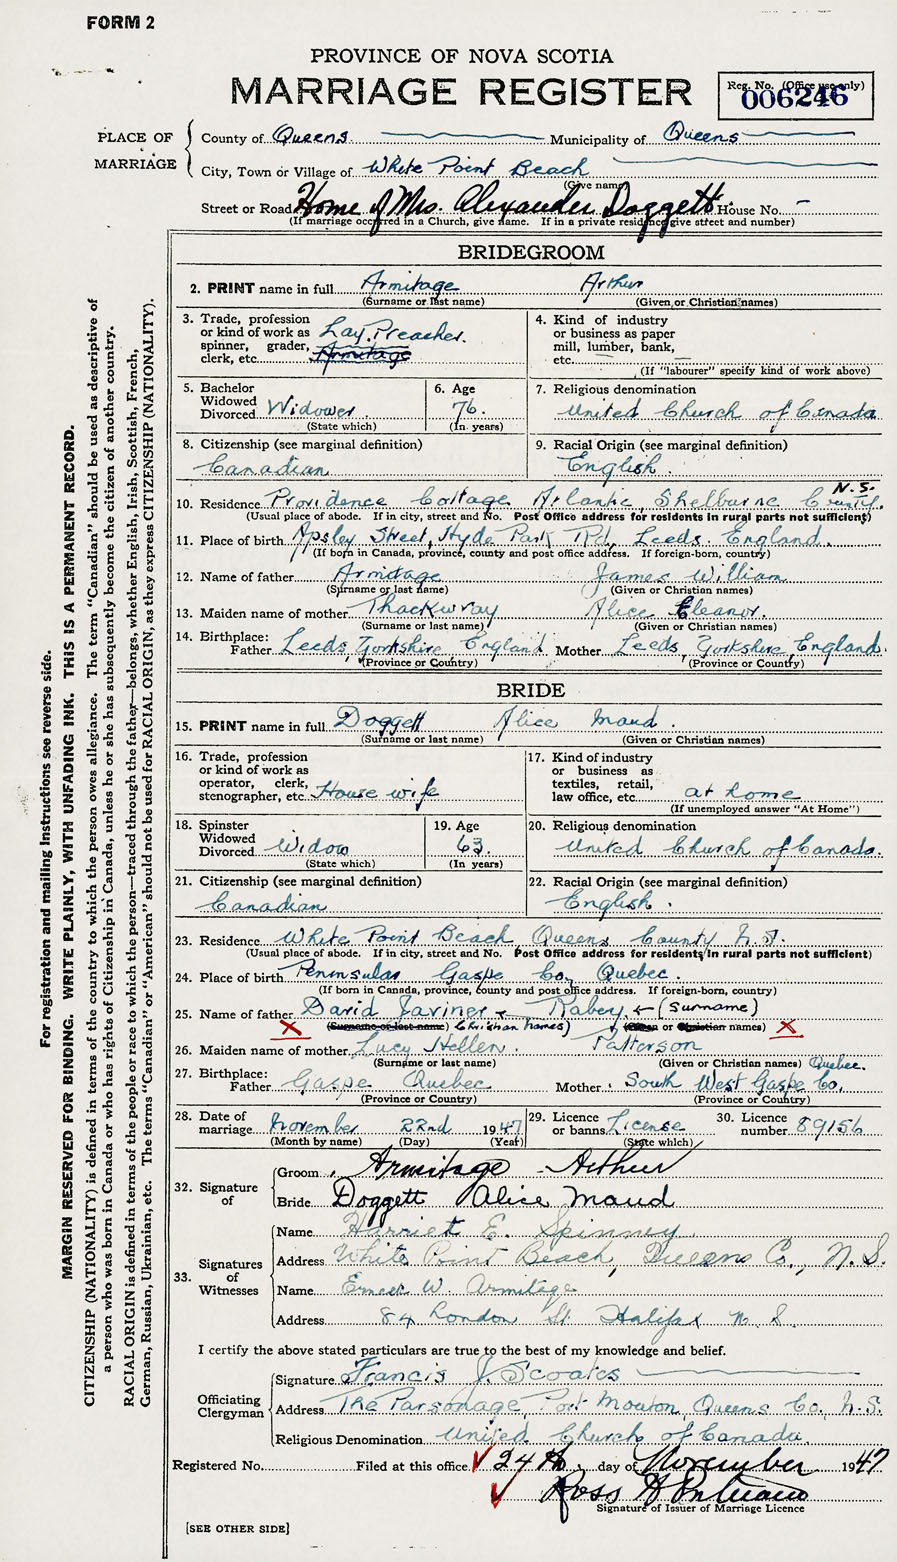 FORM 2
PROVINCE OF NOVA SCOTIA
MARRIAGE REGISTER
Reg. No. (Office use only)
006246
PLACE OF MARRIAGE
County of Queens Municipality of Queens
City, Town or Village of White Point Beach
(Give name)
Street or Road Home of Mrs. Alexander Doggett. House No. -
(If marriage occurred in a Church, give name. If in a private residence give street and number)
BRIDEGROOM
2. PRINT name in full Armitage Arthur
(Surname or last name) (Given or Christian names)
3. Trade, profession or kind of work as spinner, grader, clerk, etc. Lay. Preacher. Armitage
4. Kind of industry or business as paper mill, lumber, bank, etc. —
(If "labourer" specify kind of work above)
5. Bachelor Widowed Divorced Widower
(State which)
6. Age 76.
(In years)
7. Religious denomination
United Church of Canada
8. Citizenship (see marginal definition)
Canadian
9. Racial Origin (see marginal definition)
English.
10. Residence Providence Cottage Atlantic, Shelburne County. N.S.
(Usual place of abode. If in city, street and No. Post Office address for residents in rural parts not sufficient)
11. Place of birth Apsley Street, Hyde Park Rd, Leeds. England.
(If born in Canada, province, county and post office address. If foreign-born, country)
12. Name of father Armitage James William
(Surname or last name) (Given or Christian names)
13. Maiden name of mother Thackwray Alice Eleanor.
(Surname or last name) (Given or Christian names)
14. Birthplace:
Father Leeds, Yorkshire England Mother Leeds, Yorkshire, England.
(Province or Country) (Province or Country)
BRIDE
15. PRINT name in full Doggett Alice Maud.
(Surname or last name) (Given or Christian names)
16. Trade, profession or kind of work as operator, clerk, stenographer, etc. House wife
17. Kind of industry or business as textiles, retail, law office, etc. at home
(If unemployed answer "At Home")
18. Spinster Widowed Divorced Widow
(State which)
19. Age 63.
(In years)
20. Religious denomination
United Church of Canada.
21. Citizenship (see marginal definition)
Canadian
22. Racial Origin (see marginal definition)
English.
23. Residence White Point Beach Queens County N.S.
(Usual place of abode. If in city, street and No. Post Office address for residents in rural parts not sufficient)
24. Place of birth Peninsular Gaspe Co, Quebec.
(If born in Canada, province, county and post office address. If foreign-born, country)
25. Name of father David Rabey. ← (Surname)
X (Surname or last name) Christian names) (Given or Christian names) X
26. Maiden name of mother Lucy Hellen. Patterson
(Surname or last name) (Given or Christian names) Quebec.
27. Birthplace:
Father Gaspe Quebec Mother South West Gaspe Co.
(Province or Country) (Province or Country)
28. Date of marriage November 22nd 1947
(Month by name) (Day) (Year)
29. Licence or banns License
(State which)
30. Licence number 89156
32. Signature of
Groom Armitage Arthur
Bride Doggett Alice Maud
33. Signatures of Witnesses
Name Harriet E. Spinney
Address White Point Beach, Queens Co., N.S.
Name Ernest W. Armitage
Address 84 London St Halifax N.S.
I certify the above stated particulars are true to the best of my knowledge and belief.
Officiating Clergyman
Signature Francis J. Scoates
Address The Parsonage, Port Mouton, Queens Co, N.S.
Religious Denomination United Church of Canada.
Registered No. Filed at this office 24th day of November 1947
Ross H
Signature of Issuer of Marriage Licence
[SEE OTHER SIDE]
For registration and mailing instructions see reverse side.
MARGIN RESERVED FOR BINDING. WRITE PLAINLY, WITH UNFADING INK. THIS IS A PERMANENT RECORD.
CITIZENSHIP (NATIONALITY) is defined in terms of the country to which the person owes allegiance. The term "Canadian" should be used as descriptive of
a person who was born in Canada or who has rights of Citizenship in Canada, unless he or she has subsequently become the citizen of another country.
RACIAL ORIGIN is defined in terms of the people or race to which the person—traced through the father—belongs, whether English, Irish, Scottish, French,
German, Russian, Ukrainian, etc. The terms "Canadian" or "American" should not be used for RACIAL ORIGIN, as they express CITIZENSHIP (NATIONALITY).